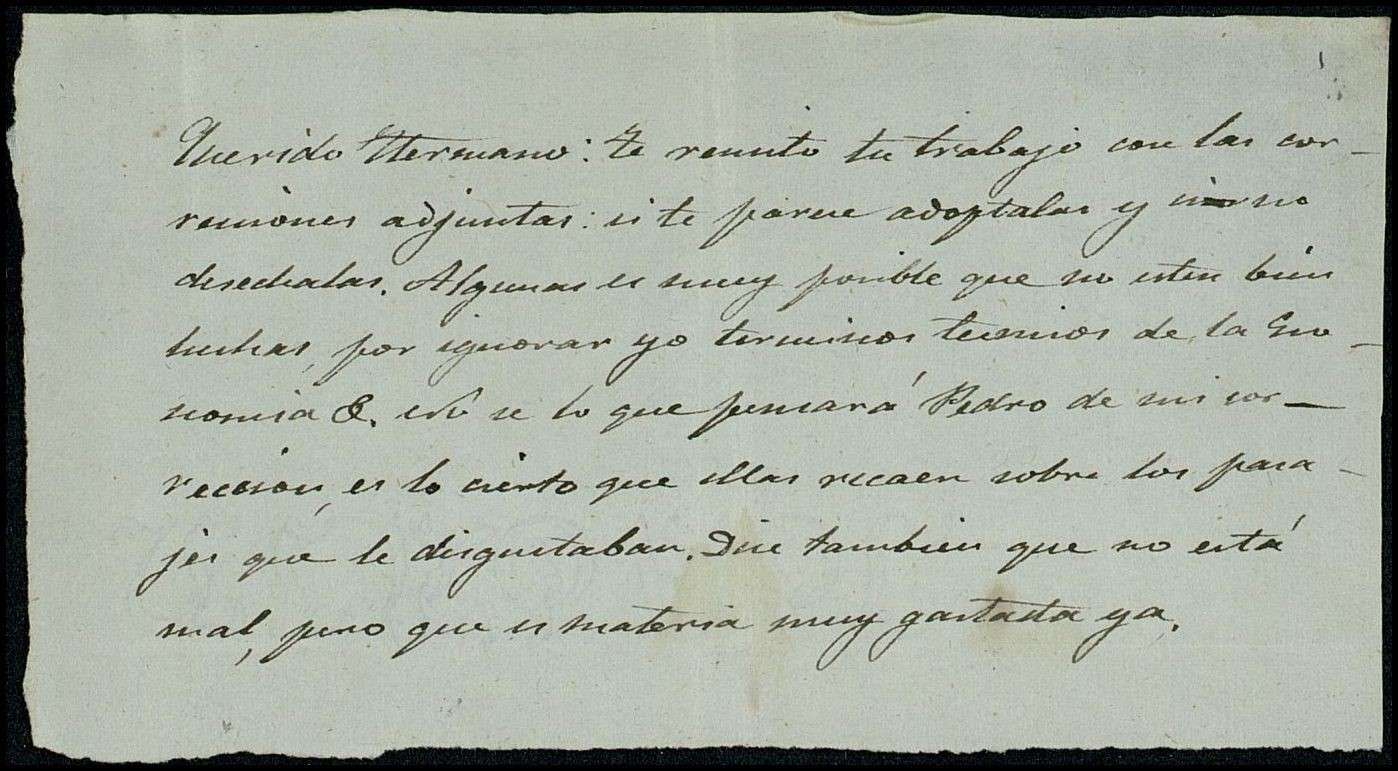 Querido Hermano: te remito tu trabajo con las cor-
recciones adjuntas: si te parece adoptalas y sino
desechalas. Algunas es muy posible que no esten bien
hechas, por ignorar yo terminos tecnicos de la Eco-
nomia &. no se lo que pensará Pedro de mi cor-
reccion, es lo cierto que ellas recaen sobre los pasa-
jes que le disgustaban. Dice tambien que no está
mal, pero que es materia muy gastada ya.